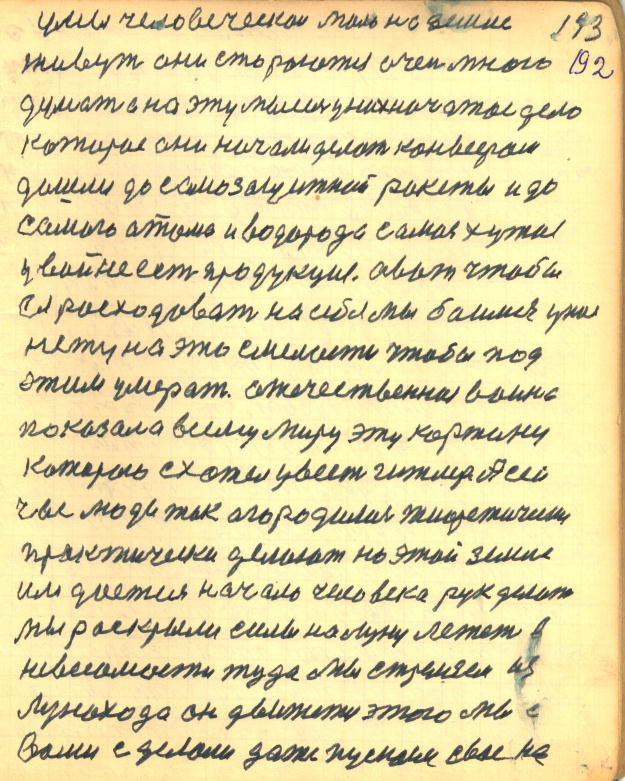 умия человеческой мало на земле 193
живут они стораются очен много 192
думат а на эту мысля уних начатое дело
которое они начали делат конвеером
дошли до самозащитной ракеты и до
самого атома и водорода самая хужая
у войне ест продукция. а вот чтобы
ея росходоват на себя мы боимся у нас
нету на это смелости чтобы под
этим умерат. отечественная воина
показала всему миру эту кортину
которою схотел увест гитлер А сей
час люди так огородились тиоретически
практически делают на этой земле
им дается начало человека рук делат
мы роскрыли силы на луну летет в
невесомости туда мы стреляем из
лунохода он движется этого мы с
вами сделали даже пускаем свое на